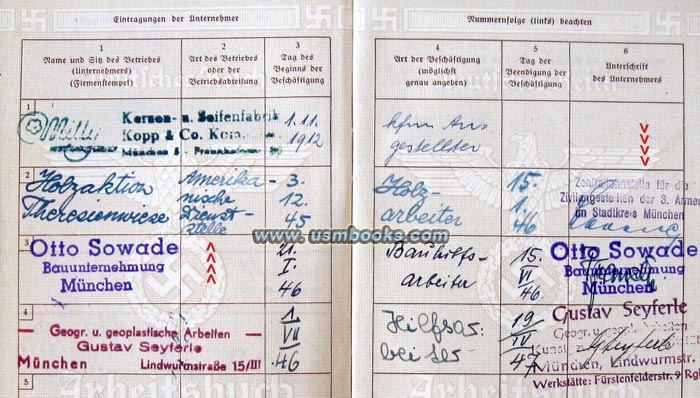 Eintragungen der Unternehmer
1
Name und Sitz des Betriebes
(Unternehmers)
(Firmenstempel)
2
Art des Betriebes
oder der
Betriebsabteilung
3
Tag des
Beginns der
Beschäftigung
1
Kerzen- u. Seifenfabrik
Kopp & Co.
München 5 - Fraunhoferstr.
1.11.
1912
2
Holzaktion
Theresienwiese
Amerika-
nische
Dienst-
stelle
3.
12.
45
3
Otto Sowade
Bauunternehmung
München
21.
I.
46
4
Geogr. u. geoplastische Arbeiten
Gustav Seyferle
München Lindwurmstraße 15/III
1.
VII
46
5
Arbeitsbuch
Nummernfolge (links) beachten
4
Art der Beschäftigung
(möglichst
genau angeben)
5
Tag der
Beendigung der
Beschäftigung
6
Unterschrift
des Unternehmers
kfm. An-
gestellter
Holz-
arbeiter
15.
1.
46
für die
Zivilangestellten der 3. Armee
im Stadtkreis München
Bauhilfs-
arbeiter
15.
VI
46.
Otto Sowade
Bauunternehmung
München
Hilfsar-
beiter
19
IV
47
Gustav Seyferle
Geogr. u. geoplastische Arbeiten
München, Lindwurmstr.
Werkstätte: Fürstenfelderstr. 9 Rgb
Arbeitsbuch
www.usmbooks.com